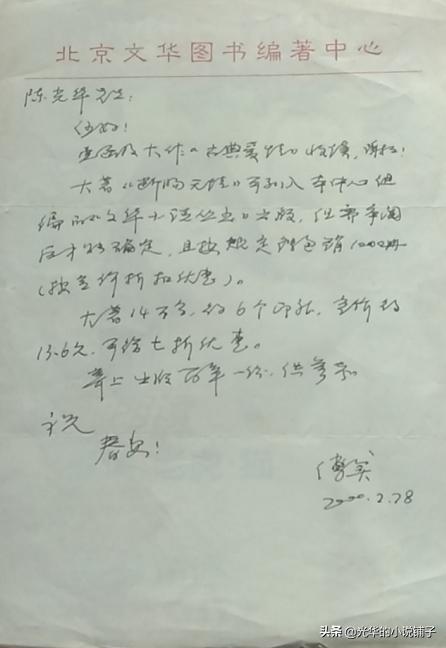 北京文华图书编著中心
陈光华先生：
您好！
惠函及大作《古典爱情》收读，谢谢！
大著《断肠天涯》可列入本中心组
编的《文华小说丛书》出版，但需审阅
后才能确定，且按规定须包销1000册
（按定价折扣优惠）。
大著14万字，约6个印张，定价约
13.6元，可给七折优惠。
寄上出版方案一份，供参考。
祝
春安！
傅实
2000.2.28
头条 @光华的小说铺子